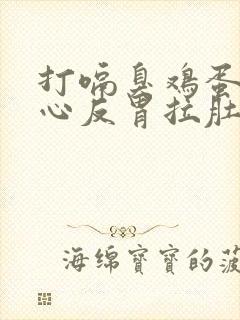 打嗝臭鸡蛋
心反胃拉肚
海绵寶寶的菠